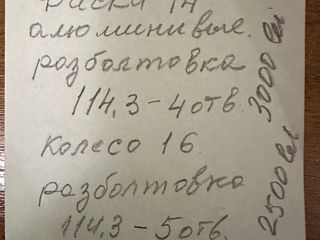 диски 14
алюминивые.
разболтовка
114,3-4отв.
3000 lei
Колесо 16.
разболтовка
114,3-5отв.
2500 lei